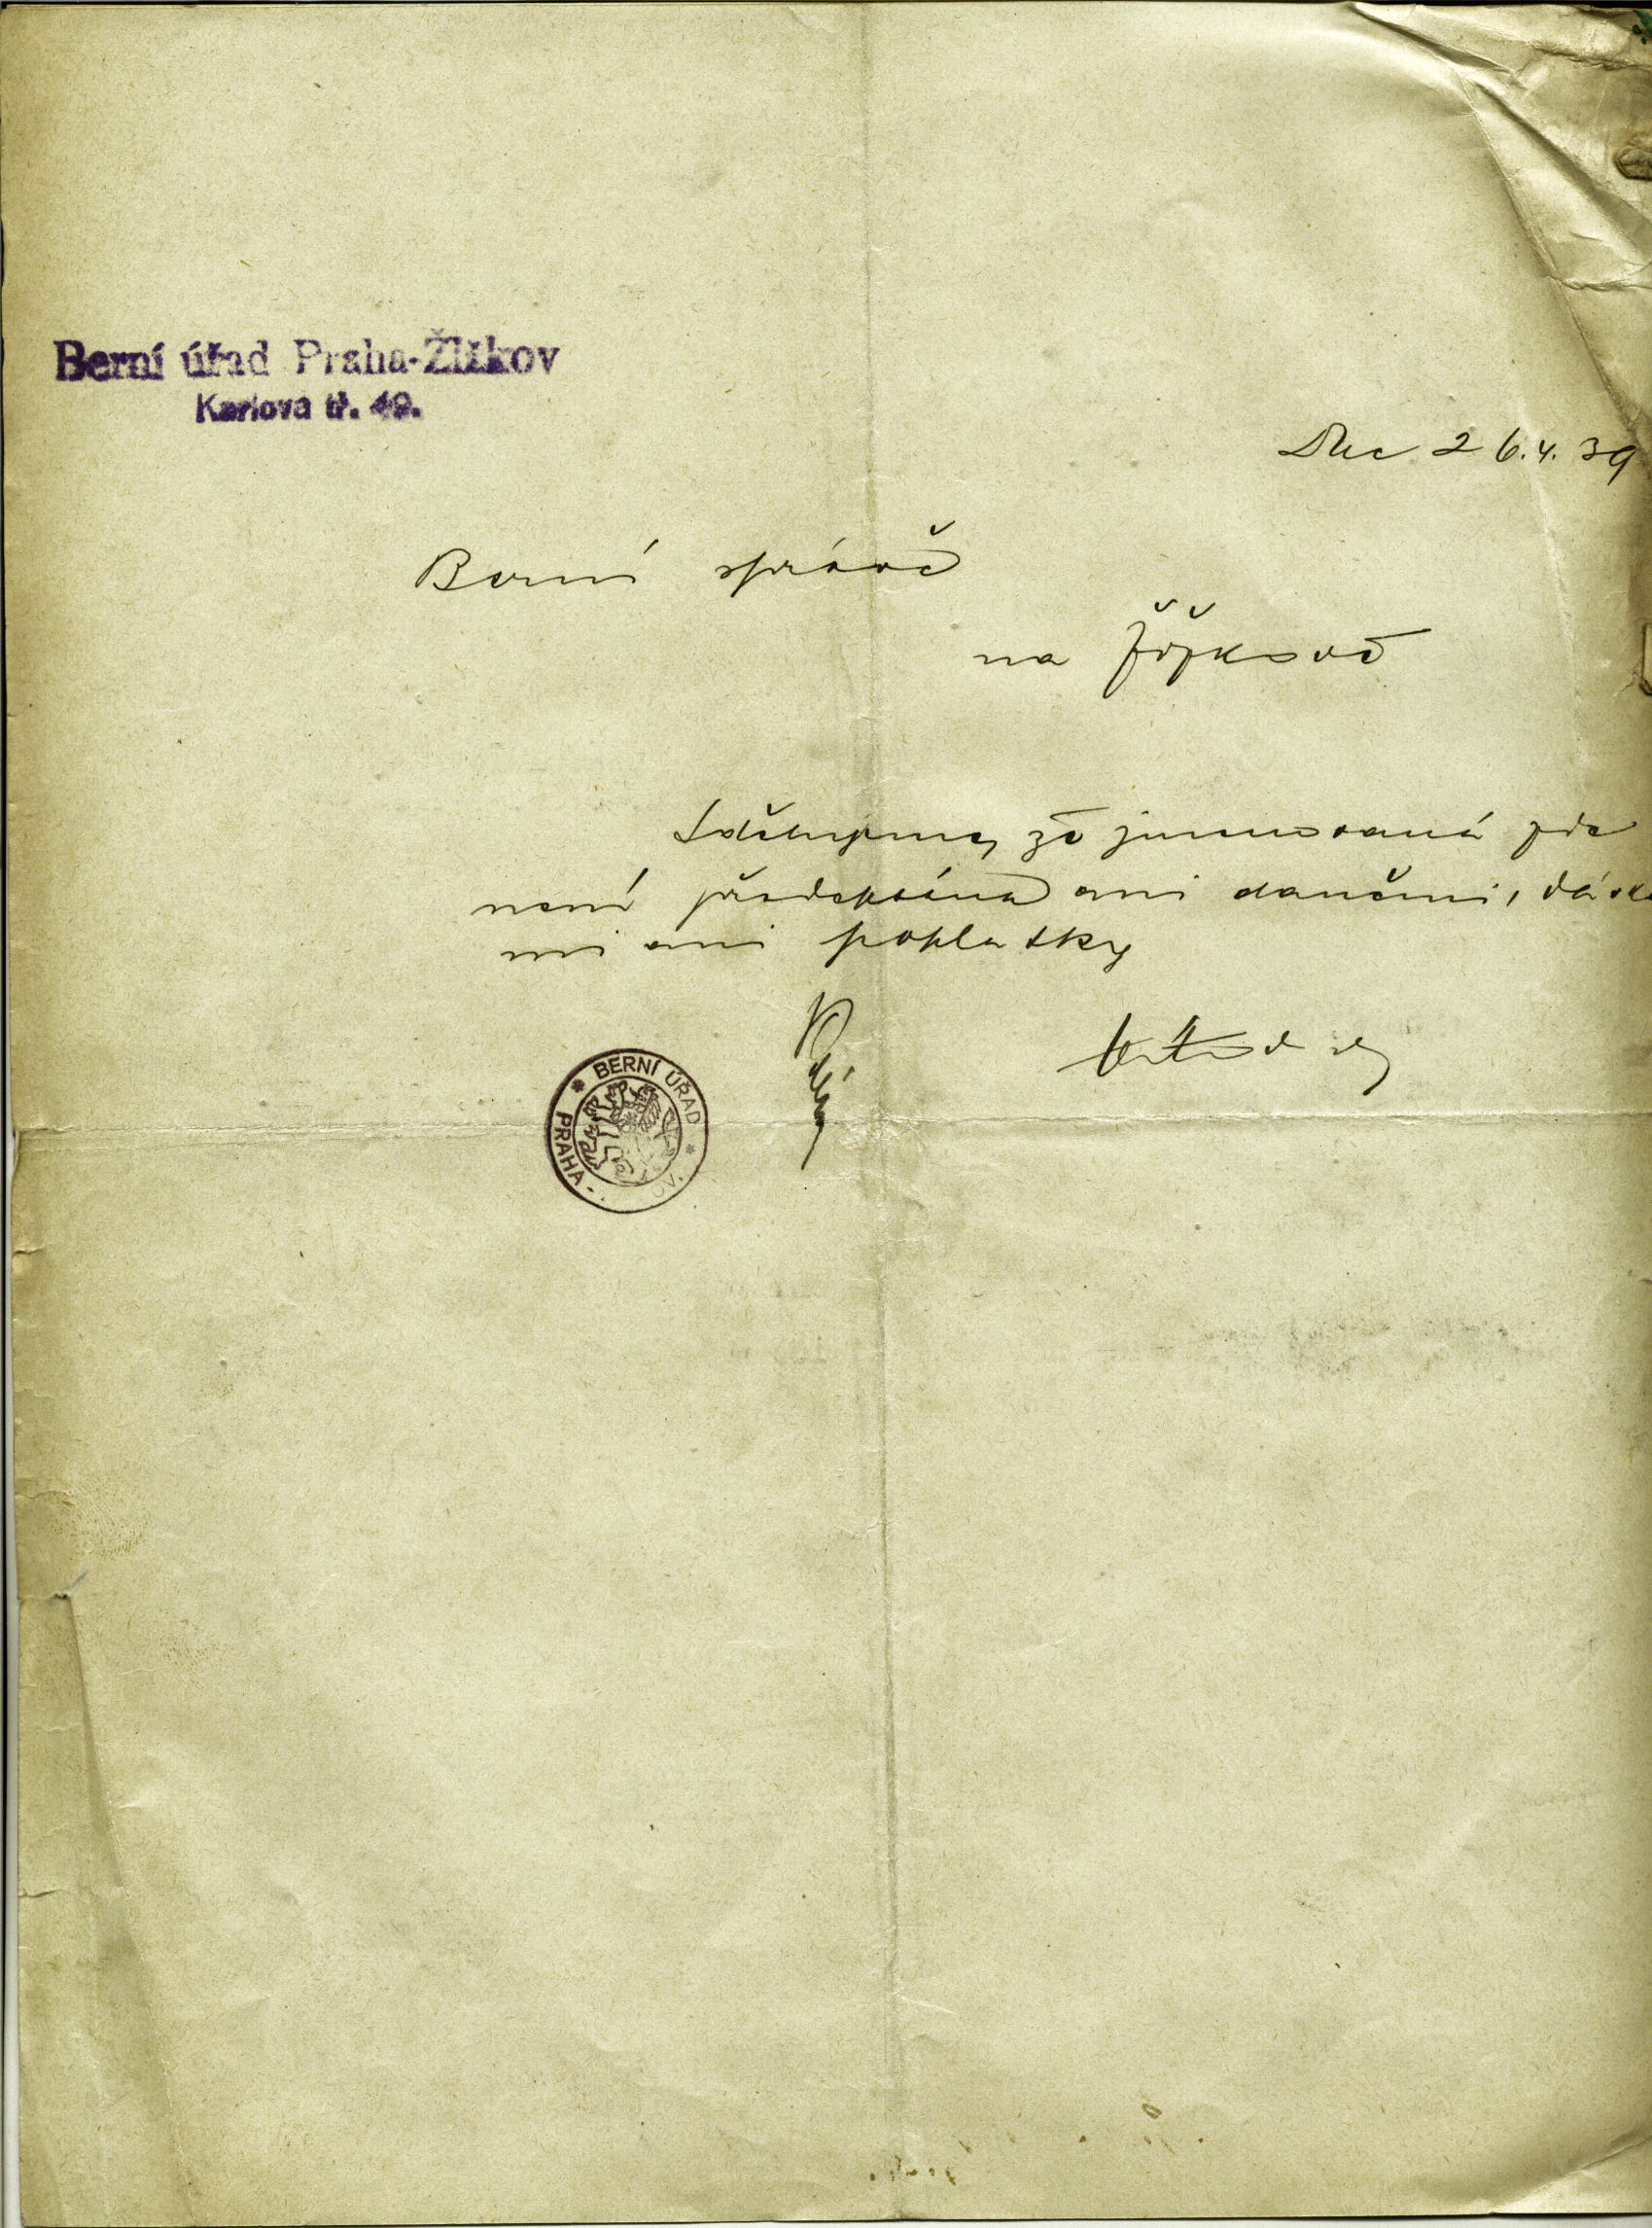 Berní úřad Praha-Žižkov
Karlova tř. 49.
Dne 26.4.39
Berní správě
na Žižkově
Sdělujeme, že jmenovaná zde
není předepsána ani daněmi, dávka
mi ani poplatky
BERNÍ ÚŘAD
PRAHA - OV.